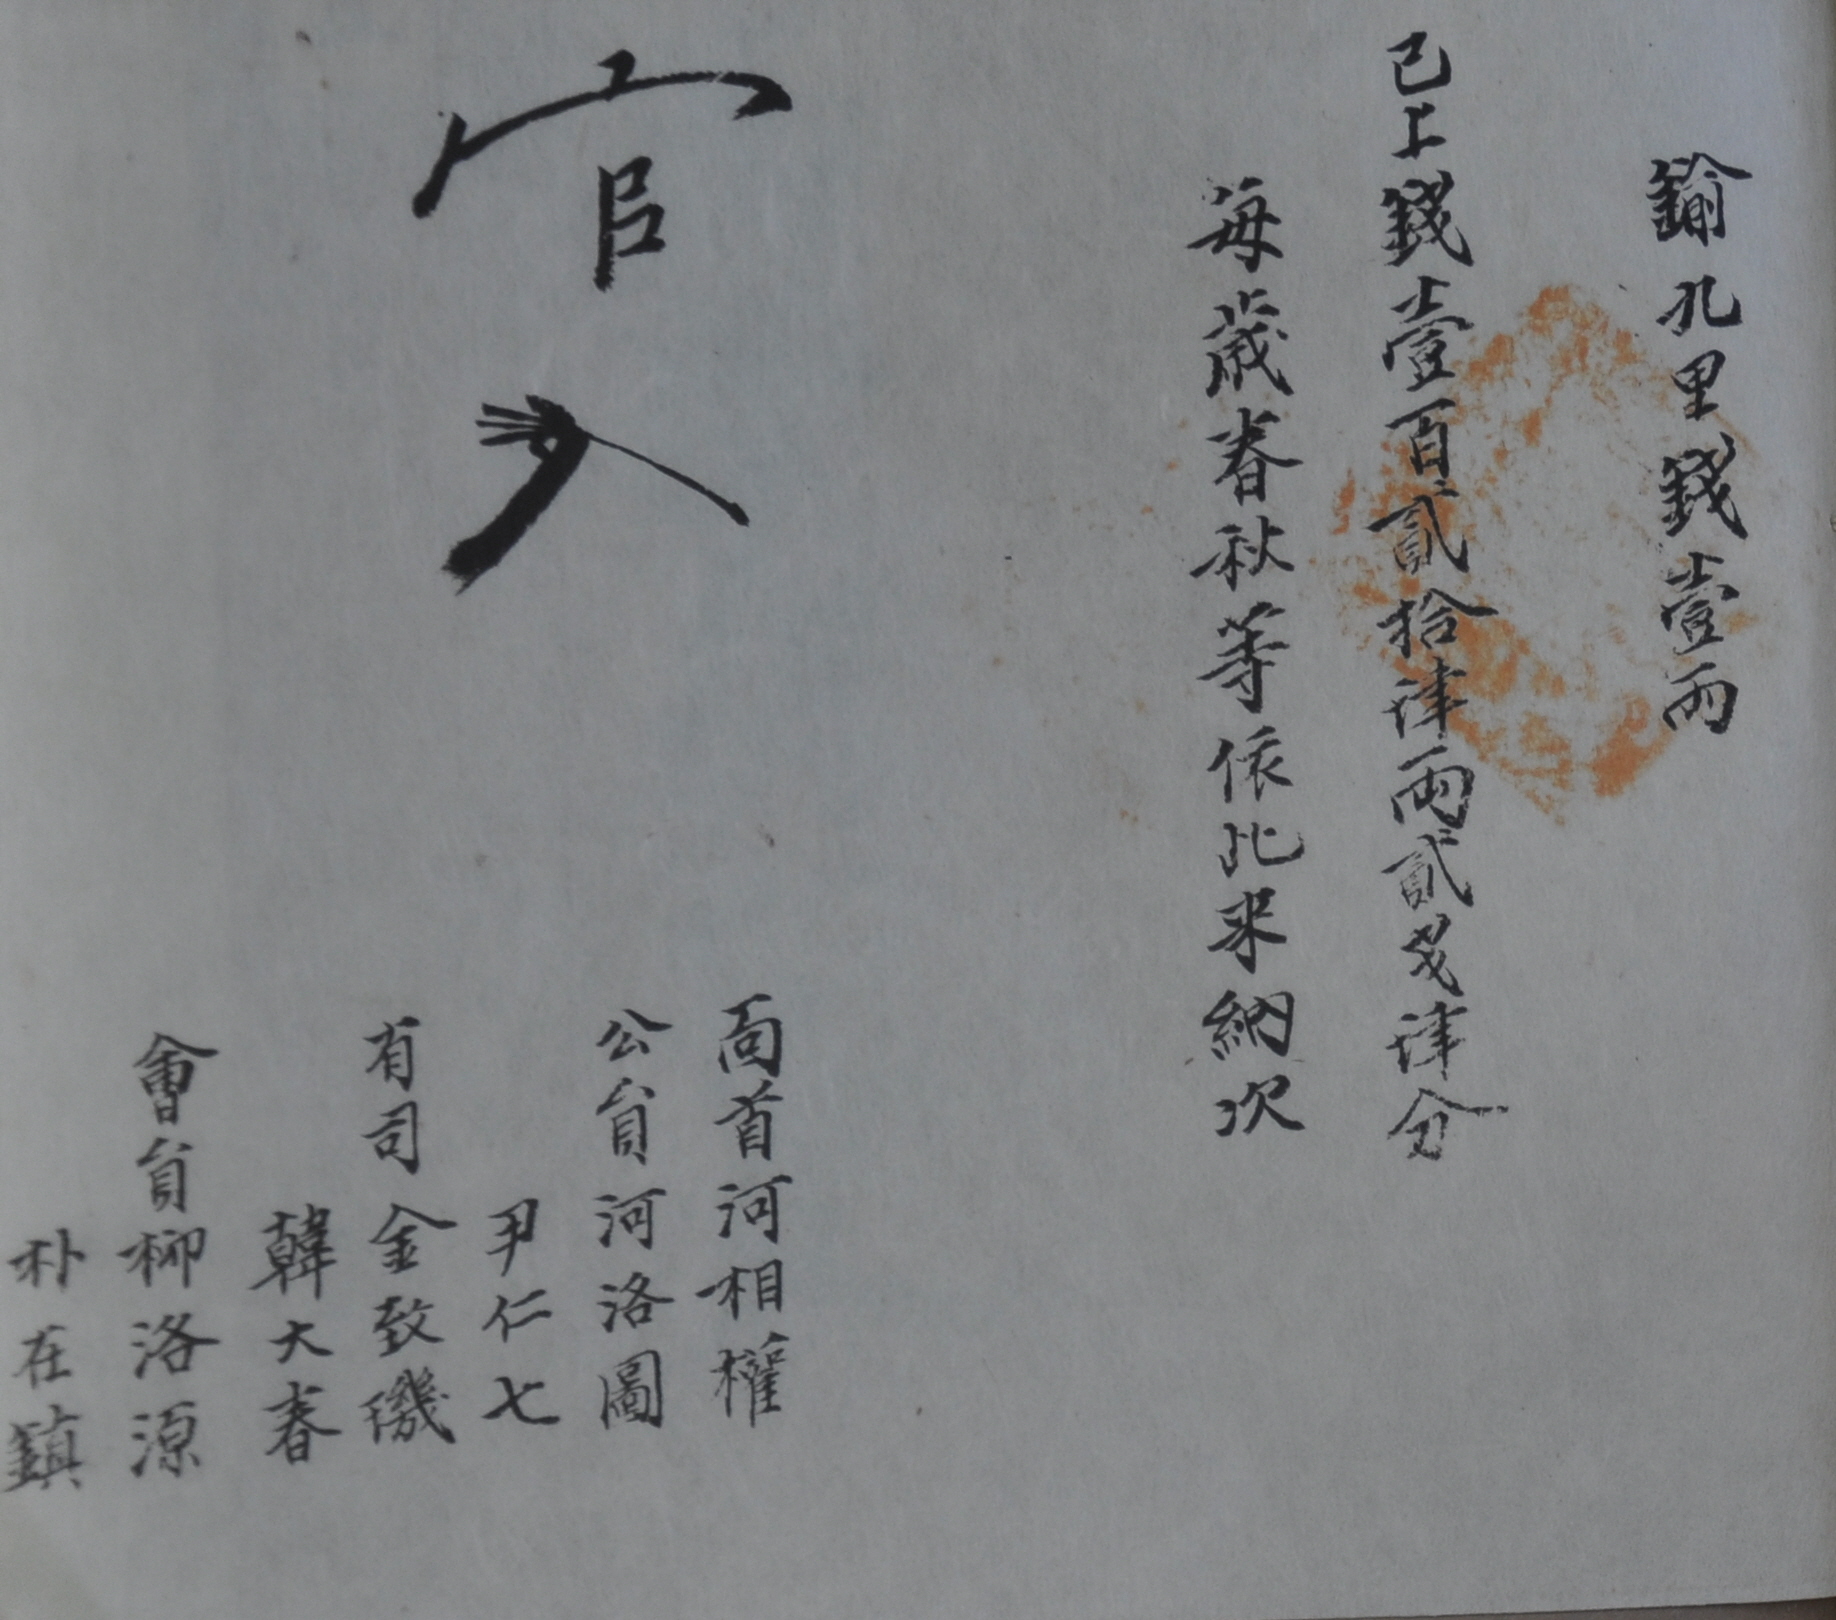 鍮孔里錢壹兩
已上錢壹百貳拾肆兩貳戔肆分
每歲春秋等依此來納次
官
面首河相權
公員河洛圖
尹仁七
有司金致璣
韓大春
會員柳洛源
朴在鎮